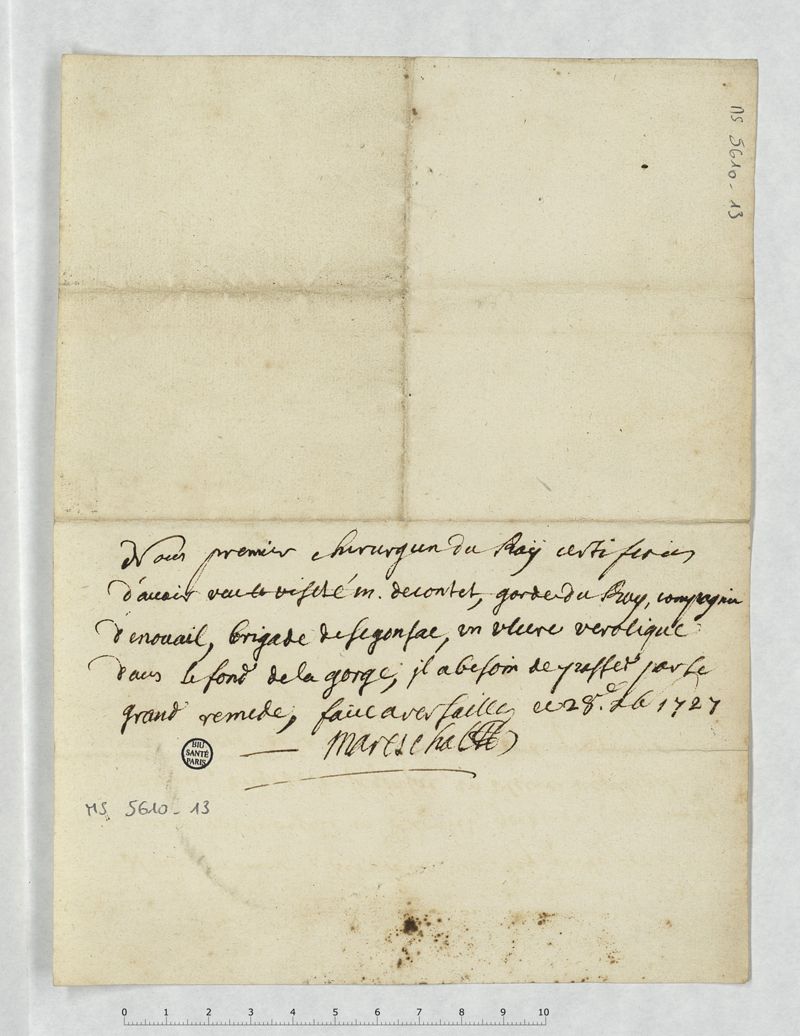 MS 5610-13
Nous premier chirurgien du Roÿ certifions
d'avoir veu et visité m. decontet, garde du Roy, compagnie
denouail, brigade de segonsac, un ulcere verolique
dans le fond de la gorge, jl a besoin de passer par le
grand remede, faict a versailles ce 28e. 1727
Mareschal
BIU SANTÉ PARIS
MS 5610-13
0 1 2 3 4 5 6 7 8 9 10